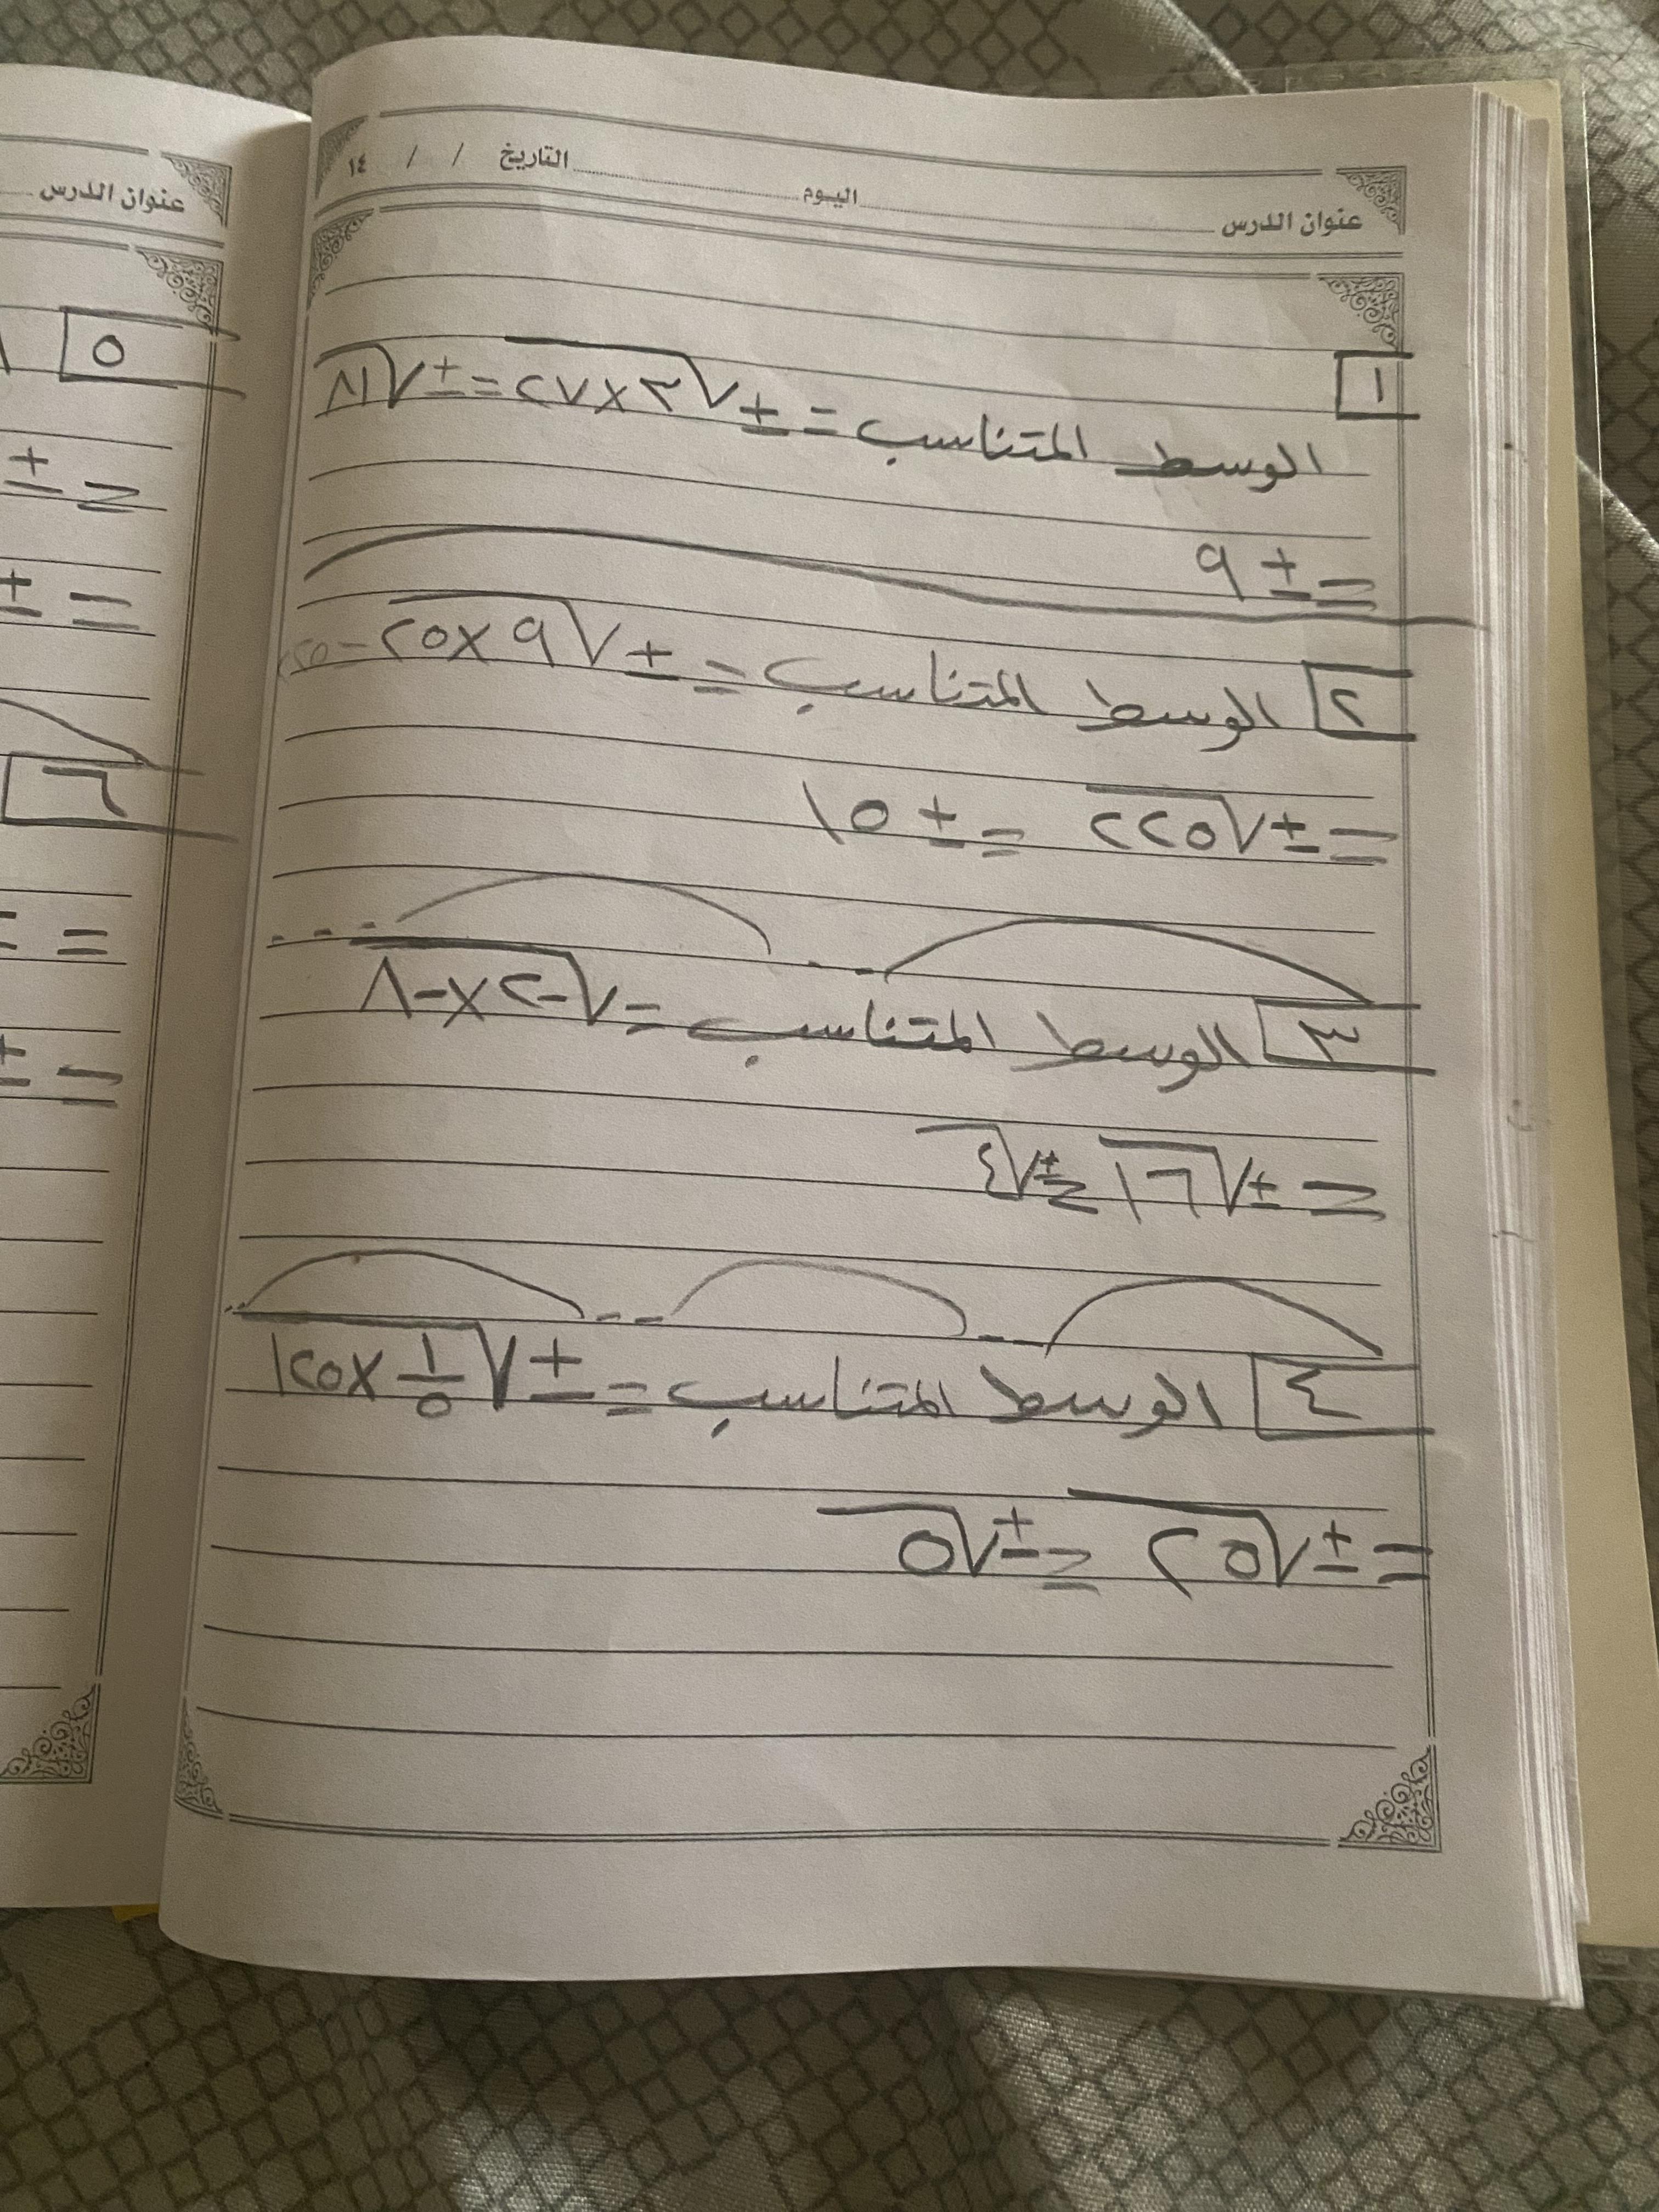 عنوان الدرس اليوم التاريخ / / ١٤
١
الوسط المتناسب = ± √٣×٢٧ = ± √٨١
= ± ٩
٢ الوسط المتناسب = ± √٩×٢٥ =
= ± √٢٢٥ = ± ١٥
٣ الوسط المتناسب = √-٢×-٨
= ± √١٦ = ± √٤
٤ الوسط المتناسب = ± √١/٥ ×١٢٥
= ± √٢٥ = ± √٥
عنوان الدرس
٥
= ±
= ±
٦
=
= ±